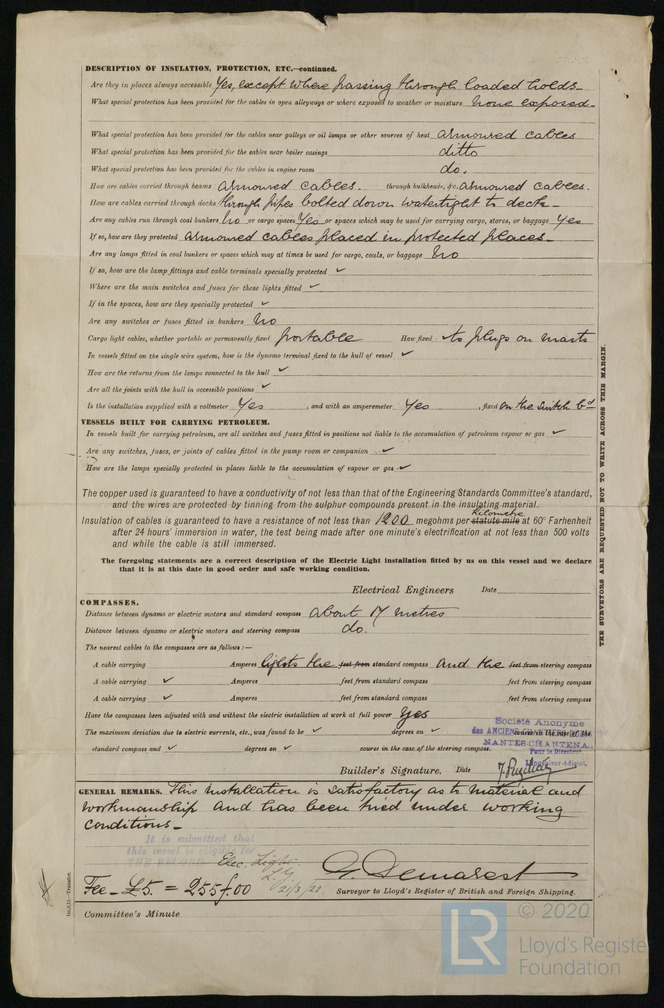 DESCRIPTION OF INSULATION, PROTECTION, ETC.—continued.
Are they in places always accessible Yes, except where passing through loaded holds.
What special protection has been provided for the cables in open alleyways or where exposed to weather or moisture none exposed.
What special protection has been provided for the cables near galleys or oil lamps or other sources of heat armoured cables
What special protection has been provided for the cables near boiler casings ditto
What special protection has been provided for the cables in engine room do.
How are cables carried through beams armoured cables. through bulkheads, &c. armoured cables.
How are cables carried through decks through pipes bolted down watertight to deck.
Are any cables run through coal bunkers No or cargo spaces Yes or spaces which may be used for carrying cargo, stores, or baggage Yes
If so, how are they protected armoured cables placed in protected places.
Are any lamps fitted in coal bunkers or spaces which may at times be used for cargo, coals, or baggage No
If so, how are the lamp fittings and cable terminals specially protected ✓
Where are the main switches and fuses for these lights fitted ✓
If in the spaces, how are they specially protected ✓
Are any switches or fuses fitted in bunkers No
Cargo light cables, whether portable or permanently fixed portable How fixed to plugs on masts
In vessels fitted on the single wire system, how is the dynamo terminal fixed to the hull of vessel ✓
How are the returns from the lamps connected to the hull ✓
Are all the joints with the hull in accessible positions ✓
Is the installation supplied with a voltmeter Yes , and with an amperemeter Yes , fixed on the switch bd
VESSELS BUILT FOR CARRYING PETROLEUM.
In vessels built for carrying petroleum, are all switches and fuses fitted in positions not liable to the accumulation of petroleum vapour or gas ✓
Are any switches, fuses, or joints of cables fitted in the pump room or companion ✓
How are the lamps specially protected in places liable to the accumulation of vapour or gas ✓
The copper used is guaranteed to have a conductivity of not less than that of the Engineering Standards Committee's standard,
and the wires are protected by tinning from the sulphur compounds present in the insulating material.
Insulation of cables is guaranteed to have a resistance of not less than 1200 megohms per statute mile at 60° Farhenheit
after 24 hours' immersion in water, the test being made after one minute's electrification at not less than 500 volts
and while the cable is still immersed.
The foregoing statements are a correct description of the Electric Light installation fitted by us on this vessel and we declare
that it is at this date in good order and safe working condition.
Electrical Engineers Date
COMPASSES.
Distance between dynamo or electric motors and standard compass about 17 metres
Distance between dynamo or electric motors and steering compass do.
The nearest cables to the compasses are as follows:—
A cable carrying Amperes lights the feet from standard compass and the feet from steering compass
A cable carrying ✓ Amperes feet from standard compass feet from steering compass
A cable carrying ✓ Amperes feet from standard compass feet from steering compass
Have the compasses been adjusted with and without the electric installation at work at full power Yes
The maximum deviation due to electric currents, etc., was found to be ✓ degrees on ✓ course in the case of the
standard compass and ✓ degrees on ✓ course in the case of the steering compass.
Société Anonyme
des ANCIENS CHANTIERS
NANTES-CHANTENAY
Pour le Directeur
Builder's Signature. Date
GENERAL REMARKS. This installation is satisfactory as to material and
workmanship and has been tried under working
conditions.
It is submitted that
this vessel is eligible for
THE RECORD Elec. Light.
21/3/22.
G. Demarest
Fee - £5. = 255f.00
Surveyor to Lloyd's Register of British and Foreign Shipping.
Committee's Minute
THE SURVEYORS ARE REQUESTED NOT TO WRITE ACROSS THIS MARGIN.
LR
© 2020
Lloyd's Register
Foundation